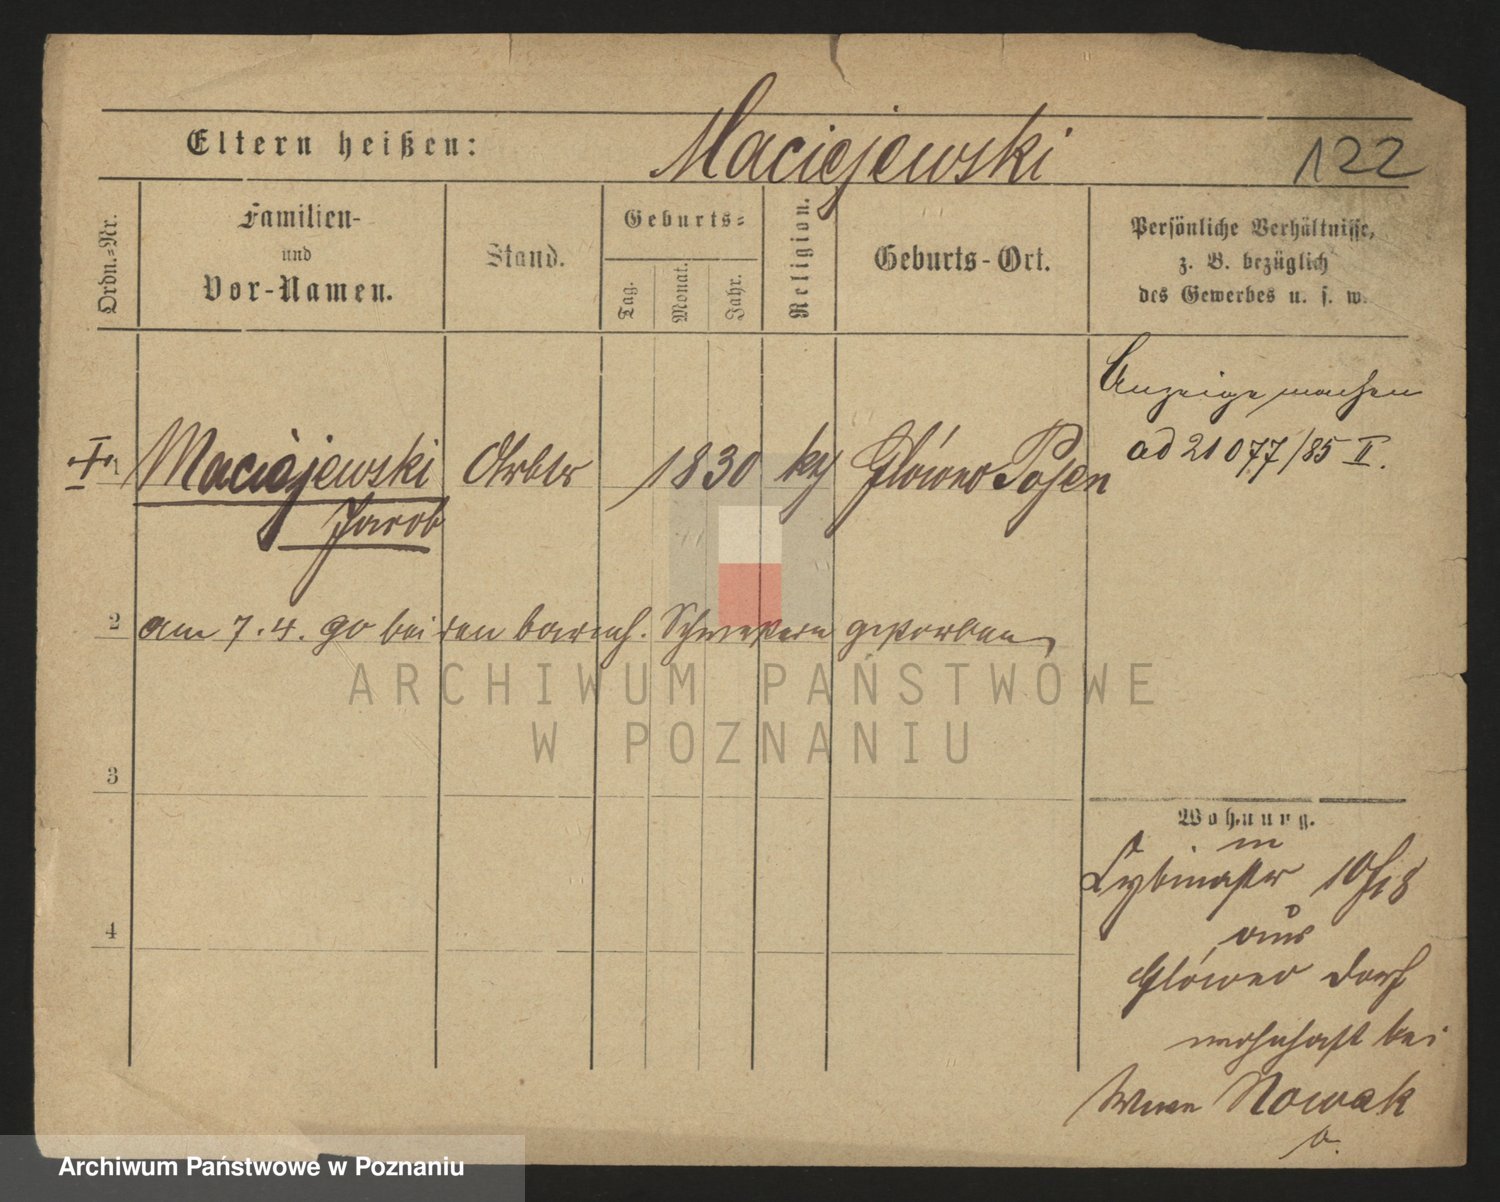 Eltern heißen: Maciejewski 122
Ordn.-Nr.
Familien-
und
Vor-Namen.
Stand.
Geburts-
Tag.
Monat.
Jahr.
Religion.
Geburts-Ort.
Persönliche Verhältnisse,
z. B. bezüglich
des Gewerbes u. s. w.
Anzeige machen
ad 21077/85 II.
1 Maciejewski Arbtr 1830 kth Główno Posen
Jacob
2 am 7.4.90 bei den barmh. Schwestern gestorben
3
4
Wohnung.
in
10/18
aus
Główno Dorf
wohnhaft bei
Wwe Nowak
ARCHIWUM PAŃSTWOWE
W POZNANIU
Archiwum Państwowe w Poznaniu